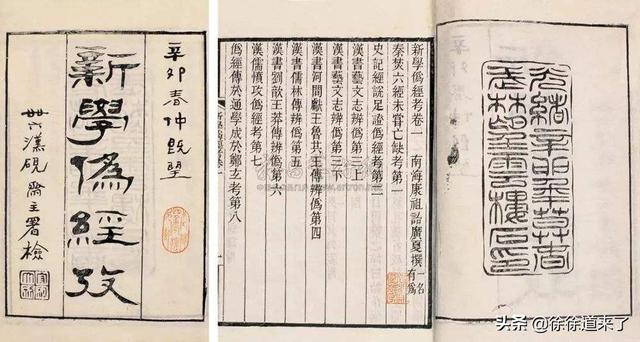 辛卯春仲既望
新學僞經攷
漢硯齋主署檢
新學僞經考卷一 南海康祖詒廣夏撰 一名有爲
秦焚六經未嘗亡缺考第一
史記經說足證僞經考第二
漢書藝文志辨僞第三上
漢書藝文志辨僞第三下
漢書河間獻王魯共王傳辨僞第四
漢書儒林傳辨僞第五
漢書劉歆王莽傳辨僞第六
漢儒憤攻僞經考第七
僞經傳於通學成於鄭玄考第八
光緒辛卯
武林望雲樓石印
头条 @徐徐道来了